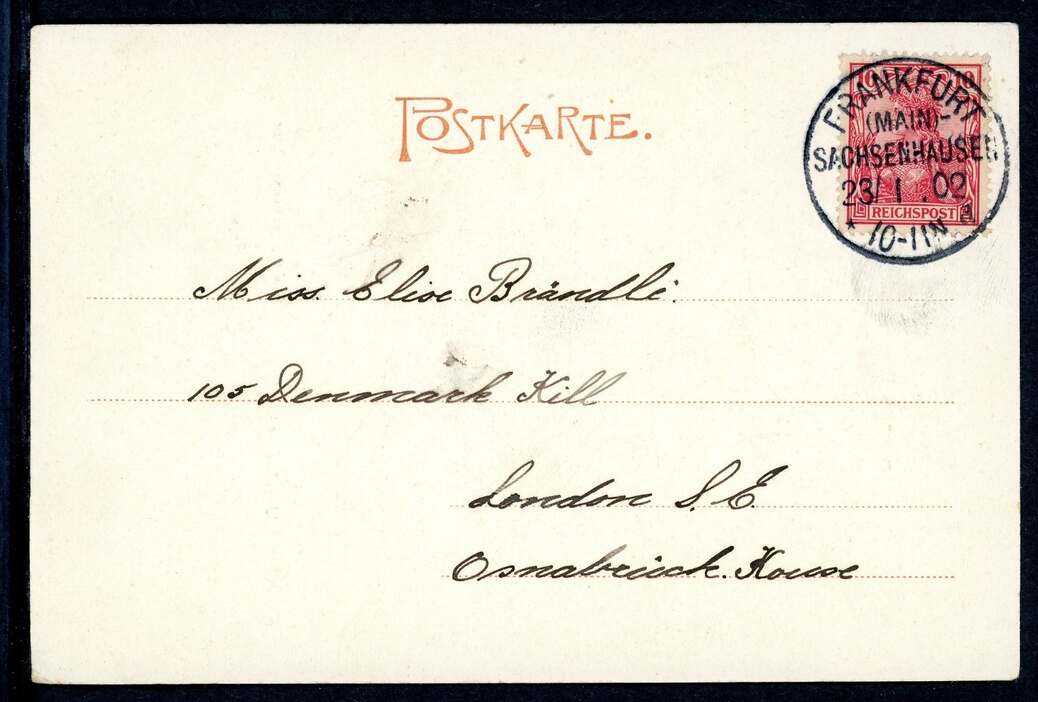 POSTKARTE.
10 10
REICHSPOST
FRANKFURT
(MAIN)-
SACHSENHAUSEN
23/1.02
* 10-11N
Miss. Elise Brändli.
105 Denmark Hill
London S.E.
Osnabrück. House